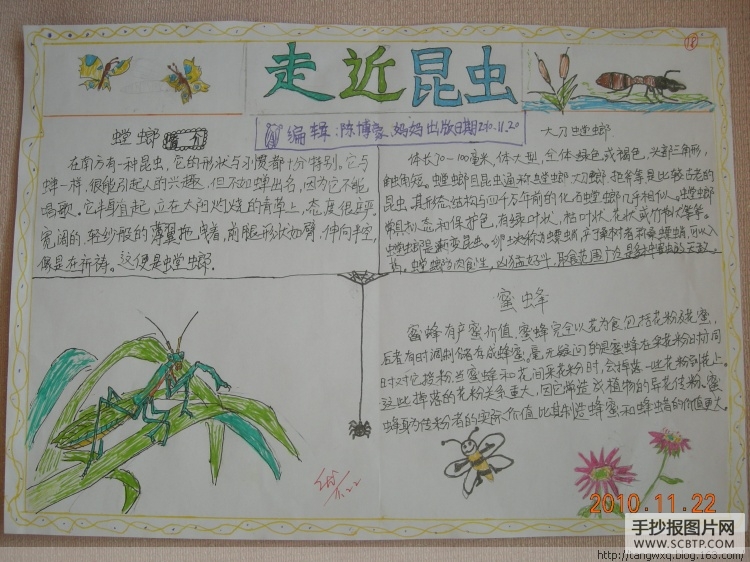 走近昆虫
18
编辑:陈博豪、妈妈 出版日期2010.11.20
螳螂简介
在南方有一种昆虫,它的形状与习惯都十分特别。它与
蝉一样,很能引起人的兴趣,但不如蝉出名,因为它不能
唱歌。它半身直起,立在太阳灼烧的青草上,态度很庄严。
宽阔的,轻纱般的薄翼拖曳着,前腿形状如臂,伸向半空,
像是在祈祷。这便是螳螂.
大刀螳螂
体长70-100毫米,体大型,全体绿色或褐色,头部三角形,
触角短。螳螂目昆虫通称螳螂,大刀螂
昆虫。其形态结构与四千万年前的化石螳螂几乎相似。螳螂
常具拟态和保护色,有绿叶状、枯叶状、花状或竹节状等等。
螳螂是渐变昆虫。
药。螳螂为肉食性,凶猛好斗,取食范围广
蜜虫蜂
蜜蜂有产蜜价值,蜜蜂完全以花为食,包括花粉及花蜜,
后者有时调制储存成蜂蜜。毫无疑问的是蜜蜂在采花粉时亦同
时对它授粉,当蜜蜂和花间采花粉时,会掉落一些花粉到花上。
这些掉落的花粉关系重大,因它常造成植物的异花传粉。蜜
蜂身为传粉者的实际价值比其制造蜂蜜和蜂蜡的价值更大。
11.22
2010.11.22
手抄报图片网
WWW.SCBTP.COM
http://tangwxq.blog.163.com/